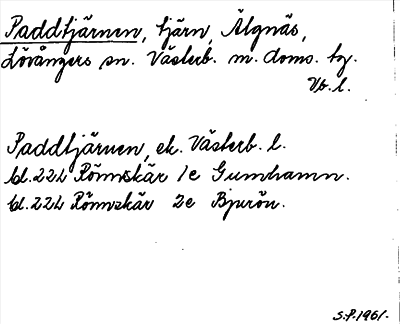 Paddtjärnen, tjärn, Älgnäs,
Lövångers sn. Västerb. m. doms. tg.
Vb. l.
Paddtjärnen, ek. Västerb. l.
bl. 22L Rönnskär 1e Gumhamn.
bl. 22L Rönnskär 2e Bjurön.
S.P. 1961.